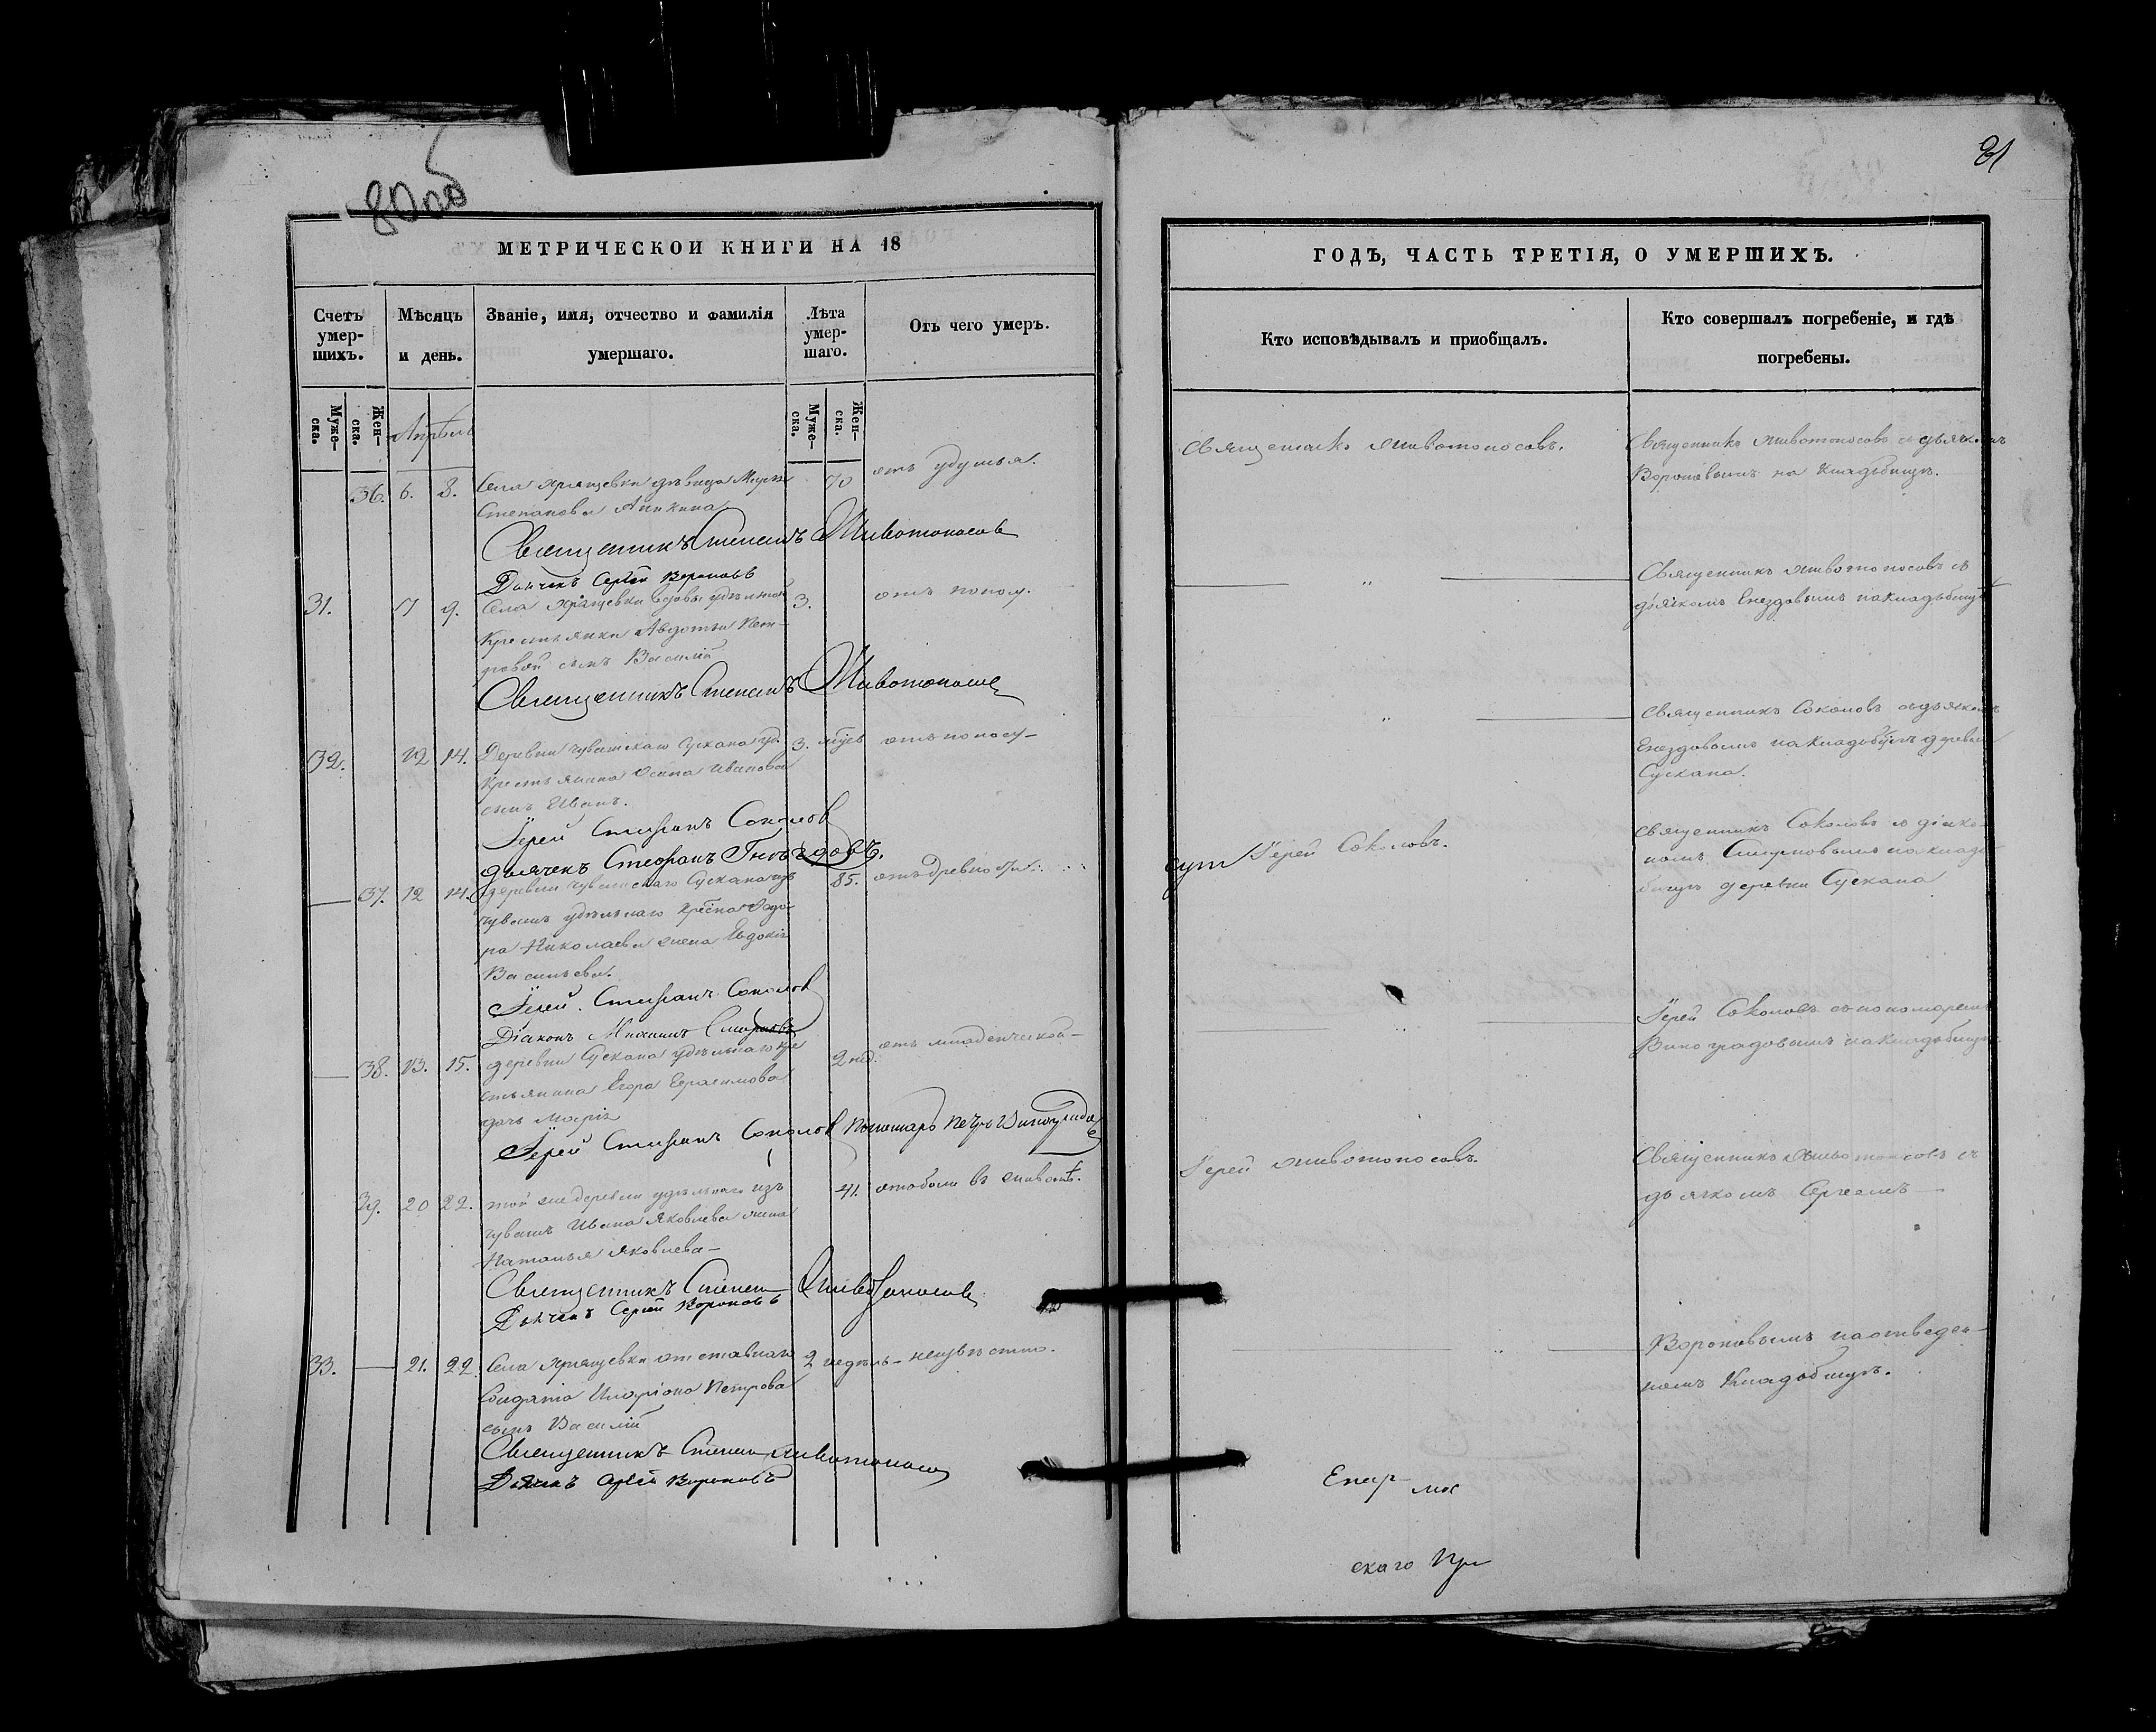 80 об
МЕТРИЧЕСКОЙ КНИГИ НА 18
Счетъ умер-шихъ.
Муже-ска.
Жен-ска.
Мѣсяцъ и день.
Званіе, имя, отчество и фамилія умершаго.
Лѣта умер-шаго.
Муже-ска.
Жен-ска.
Отъ чего умеръ.
Апрѣль
36. 6. 8. Села Хрящевки дѣвица Марья 70 отъ удушья.
Степанова Аникина
Священникъ Стефанъ Животоносовъ
Дьячекъ Сергѣй Вороновъ
31. 7 9. Села Хрящевки вдовы удѣльной 3. отъ поносу.
Крестьянки Авдотьи Пет-
ровой сынъ Василій
Священникъ Стефанъ Животоносов
32. 12 14. Деревни Чувашскаго Сускана уд. 3. отъ поносу
Крестьянина Осипа Иванова
сынъ Иванъ.
Іерей Стефанъ Соколов
дьячекъ Стефанъ Гнѣздовъ.
37. 12 14. деревни Чувашскаго Сускана изъ 85. отъ древности
чувашъ удѣльнаго Крестна Ѳедо-
ра Николаева жена Евдокія
Васильева.
Іерей Стефанъ Соколов
Діаконъ Смирновъ
38. 13. 15. деревни Сускана удѣльнаго кре 2 нед. отъ младенческой
стьянина Егора Герасимова
дочь Марія
Іерей Стефанъ Соколов Пономарь Петръ Виноградов
39. 20 22. той же деревни удѣльнаго изъ 41. отъ боли въ животѣ.
чувашъ Ивана Яковлева жена
Наталья Яковлева
Священникъ Стефан Животоносов
Дьячекъ Сергѣй Вороновъ
33. 21. 22. Села Хрящевки отставнаго 2 недѣль неизвѣстно.
Солдата Иларіона Петрова
сынъ Василій
Священникъ Стефан Животоносов
Дьячекъ Сергѣй Вороновъ
81
ГОДЪ, ЧАСТЬ ТРЕТІЯ, О УМЕРШИХЪ.
Кто исповѣдывалъ и приобщалъ.
Кто совершалъ погребеніе, и гдѣ погребены.
Священникъ Животоносовъ.
Священникъ Животоносовъ съ дьячкомъ
Вороновымъ на кладбищѣ.
Священникъ Животоносовъ съ
дьячкомъ Гнездовымъ на кладбищѣ
Священникъ Соколовъ съ дьячкомъ
Гнездовымъ на кладбищѣ деревни
Сускана.
Іерей Соколовъ.
Священникъ Соколовъ съ діако-
номъ Смирновымъ на клад-
бищѣ деревни Сускана
Іерей Соколовъ съ пономаремъ
Виноградовымъ на кладбищѣ
Іерей Животоносовъ.
Священникъ Животоносовъ съ
дьячкомъ Сергеемъ
Вороновымъ на отведен-
номъ Кладбищѣ.
скаго